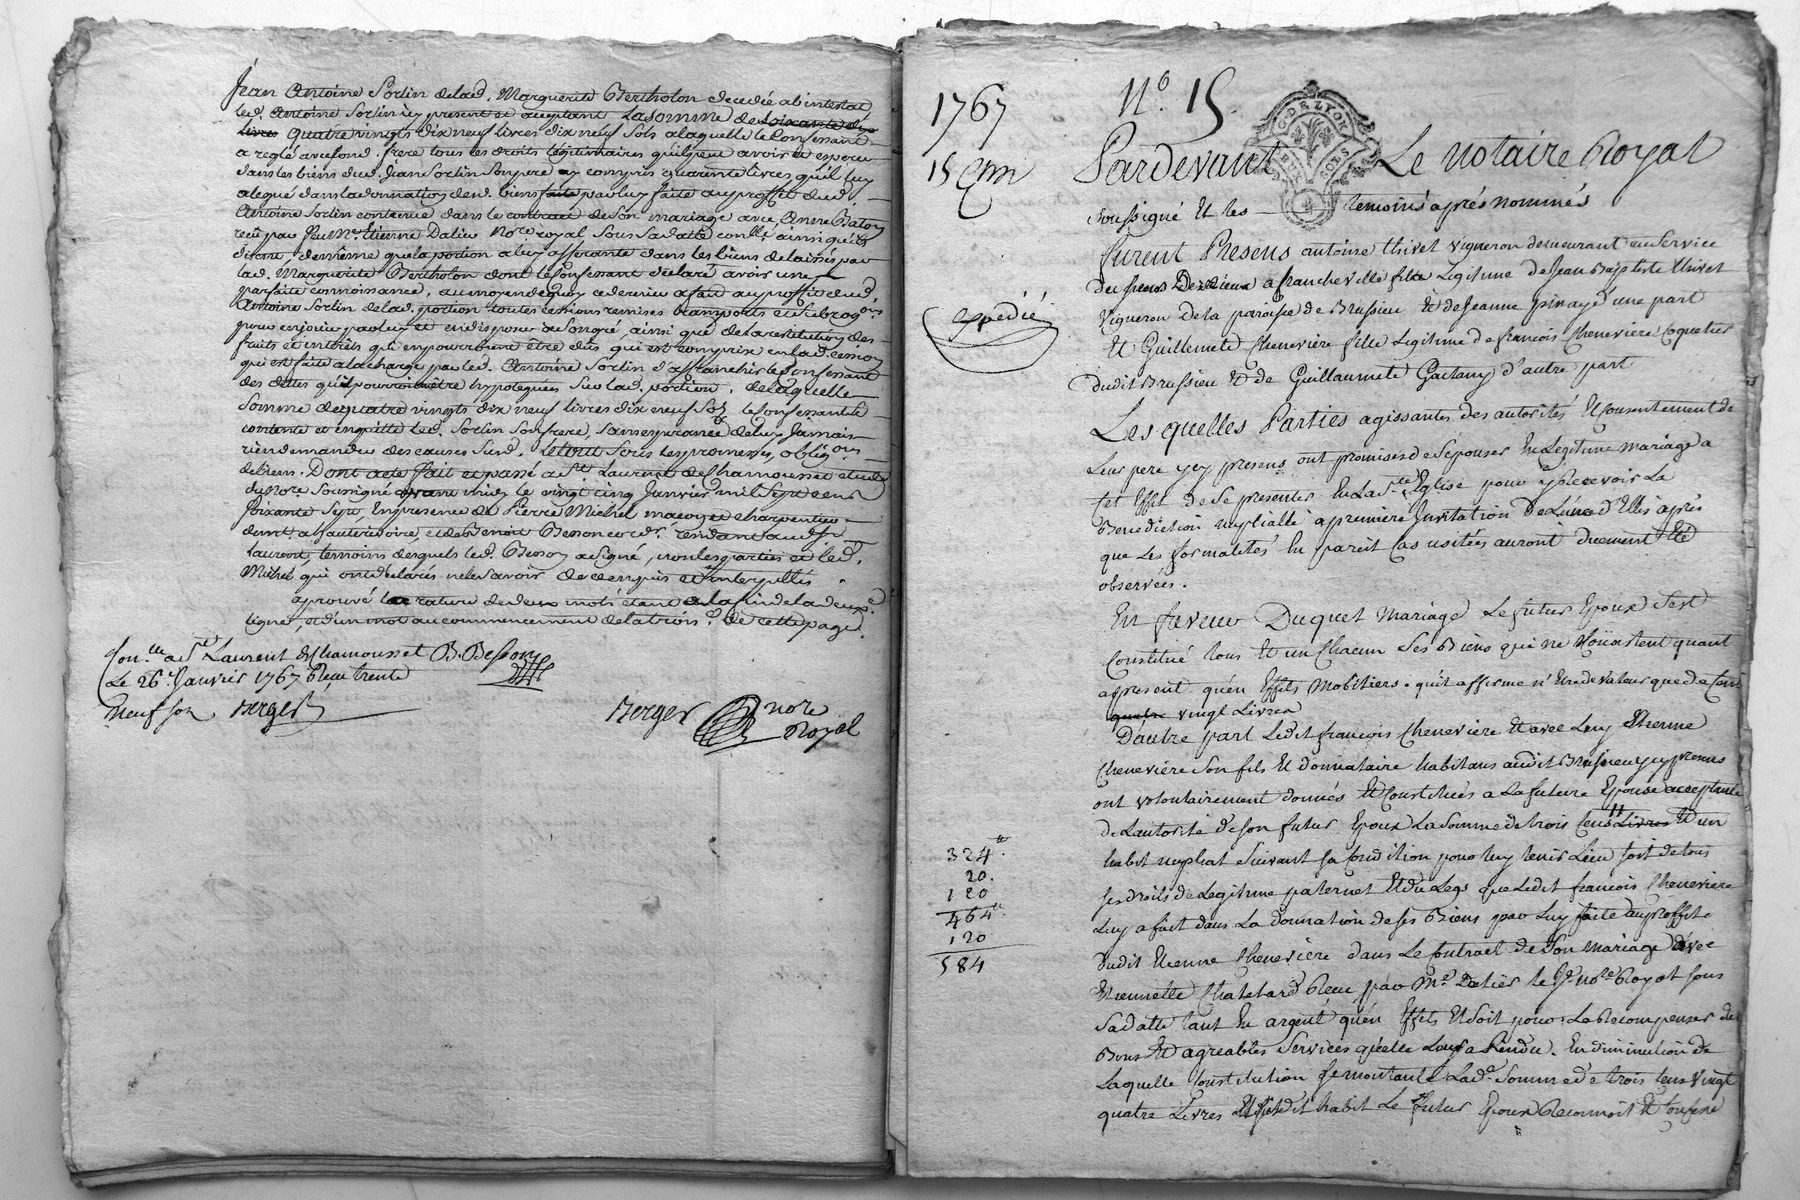 Jean Antoine Sorlin de lad. Marguerite Bertholon decedée ab intestat
led. Antoine Sorlin icy present et acceptant La somme de soixante dix
livres quatre vingts dix neuf livres dix neuf sols a laquelle le Confessant
a reglé avec sond. frere tous les droits legitimaires qu'il peut avoir et esperer
dans les biens dud. Jean Sorlin son pere y compris quarante livres qu'il luy
a legué dans la donnation de sd. biens faite par luy faite au proffit dud.
Antoine Sorlin contenue dans le contract de son mariage avec Anne Baton
reçu par feu Me. Etienne Dalier Nore royal sous sa datte conllé. ainsi qu'ils
disent, de même que la portion a luy afferante dans les biens delaissés par
lad. Marguerite Bertholon dont le Confessant declare avoir une
parfaite connoissance, au moyen de quoy ce dernier a fait au proffit dud.
Antoine Sorlin de lad. portion toutes cessions remises transports et subrogons
pour en jouir par luy et en disposer a son gré ainsi que de la restitution des
fruits et interets qui en pourroient être dûs qui est comprise en lad. cession
qui est faite a la charge par led. Antoine Sorlin d'affranchir le Confessant
des dettes qui pourroient être hypotequées sur lad. portion, de laquelle
somme de quatre vingts dix neuf livres dix neuf sols le Confessant se
contente et en quitte led. Sorlin son frere, sans esperance de luy jamais
rien demander des causes susd. Le tout sous les promesses, obligons
de biens. Dont acte fait et passé a St. Laurent de Chamousset etude
du Nore soussigné avant midy le vingt cinq Janvier mil sept cent
soixante sept, En presence de Pierre Michel maçon et charpentier
demt. a hauterivoire, et de Benoit Besson cordr. residant aud. St.
Laurent, temoins desquels led. Besson a signé, non les parties et led.
Michel qui ont declarés ne le savoir de ce enquis et interpellés
aprouvé la rature de deux mots etant a la fin de la deuxe.
ligne, et d'un mot au commencement de la troise. de cette page.
Con.lle a St. Laurent de Chamousset B. Besson
Le 26e. Janvier 1767 Reçu trente
neuf sols Berger
Berger nore
Royal
1767
15 Em
N°. 15
G DE LYON
Pardevant Le Notaire Royal
soussigné Et les temoins après nommés
furent Presens antoine thivel vigneron demeurant au service
du sieur Devieux a francheville fils Legitime de Jean Baptiste thivel
vigneron de la paroisse de Brussieu Et de Jeanne pinayé d'une part
expedié
Et Guillemete Cheneviere fille Legitime de françois Cheneviere Coquetier
dudit Brussieu Et de Guillaumete Gaetany d'autre part
Lesquelles Parties agissantes des autorités Et Consentement de
Leur pere ycy presens ont promises de Sepouser En Legitime mariage a
cet Effet de Se presenter En La Ste. Eglise pour y Recevoir La
Benediction nuptialle a premiere Invitation de L'une d'Elles après
que Les formalités En pareil Cas usitées auront duement Eté
observées.
En faveur Duquel Mariage Le futur Epoux s'est
Constitué tous Et un Chacun Ses Biens qui ne Consistent quant
apresent qu'en Effets Mobiliers. qu'il affirme n'Etre de valeur que de Cent
quatre vingt Livres
Dautre part Ledit françois Cheneviere Et avec Luy Etienne
Cheneviere Son fils Et donnataire habitans audit Brussieu ycy presens
ont volontairement donnés Et Constitués a La future Epouse acceptante
de Lautorité de son futur Epoux La Somme de trois Cens Livres Et un
habit nuptial Suivant sa Condition pour luy tenir Lieu tort de tous
324₶.
20.
120
464₶.
120
584
ses droits de Legitime paternel Et du Legs que Ledit françois Cheneviere
Luy a fait dans La donnation de ses Biens par Luy faite au proffit
dudit Etienne Cheneviere dans Le Contract de Son mariage avec
Etiennette Chatelard Recu par Me. Dalier le Je. nore Royal sous
Sa datte tant En argent qu'en Effets Et Soit pour La Recompenser des
Bons Et agreables Services qu'elle Leur a Rendu. En diminution de
Laquelle Constitution Se montante Lad. Somme de trois Cens vingt
quatre Livres Et sondit habit Le futur Epoux Reconnoit Et Confesse